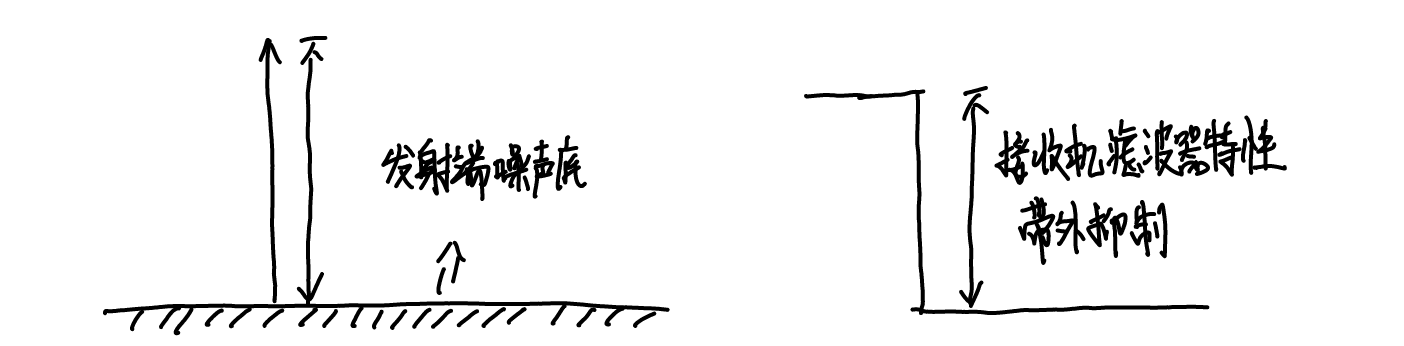 发射端噪声底
接收机滤波器特性
带外抑制